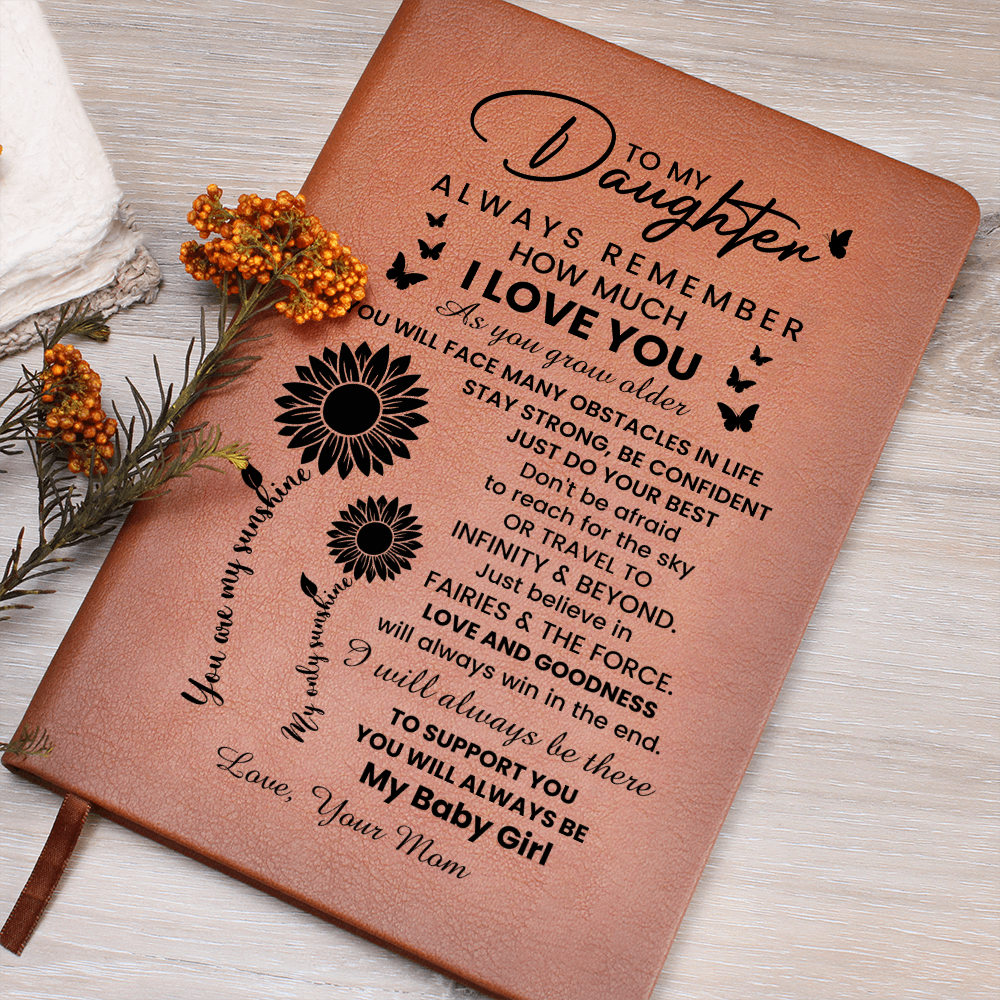 TO MY
Daughter
ALWAYS REMEMBER
HOW MUCH
I LOVE YOU
As you grow older
YOU WILL FACE MANY OBSTACLES IN LIFE
STAY STRONG, BE CONFIDENT
JUST DO YOUR BEST
Don't be afraid
to reach for the sky
OR TRAVEL TO
INFINITY & BEYOND.
Just believe in
FAIRIES & THE FORCE.
LOVE AND GOODNESS
will always win in the end.
I will always be there
TO SUPPORT YOU
YOU WILL ALWAYS BE
My Baby Girl
You are my sunshine
My only sunshine
Love, Your Mom